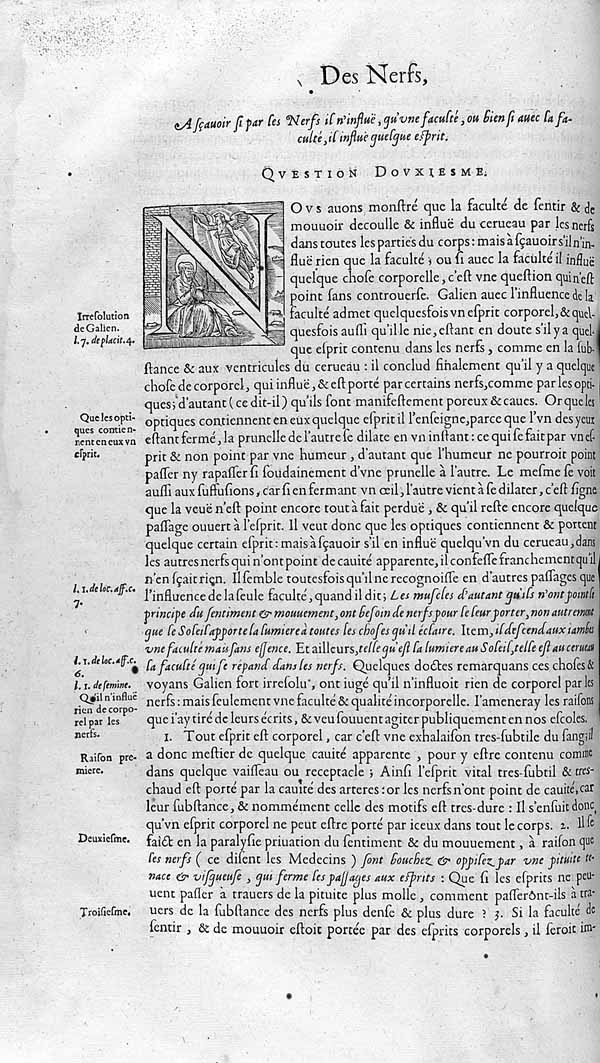 Des Nerfs,
A sçauoir si par les Nerfs il n'influë, qu'vne faculté, ou bien si auec la fa-
culté, il influë quelque esprit.
QVESTION DOVXIESME.
NOVS auons monstré que la faculté de sentir & de
mouuoir decoulle & influë du cerueau par les nerfs
dans toutes les parties du corps: mais à sçauoir s'il n'in-
fluë rien que la faculté; ou si auec la faculté il influë
quelque chose corporelle, c'est vne question qui n'est
point sans controuerse. Galien auec l'influence de la
faculté admet quelquesfois vn esprit corporel, & quel-
quesfois aussi qu'il le nie, estant en doute s'il y a quel-
que esprit contenu dans les nerfs, comme en la sub-
stance & aux ventricules du cerueau: il conclud finalement qu'il y a quelque
chose de corporel, qui influë, & est porté par certains nerfs, comme par les opti-
ques; d'autant (ce dit-il) qu'ils sont manifestement poreux & caues. Or que les
optiques contiennent en eux quelque esprit il l'enseigne, parce que l'vn des yeux
estant fermé, la prunelle de l'autre se dilate en vn instant: ce qui se fait par vn es-
prit & non point par vne humeur, d'autant que l'humeur ne pourroit point
passer ny rapasser si soudainement d'vne prunelle à l'autre. Le mesme se voit
aussi aux suffusions, car si en fermant vn œil, l'autre vient à se dilater, c'est signe
que la veuë n'est point encore tout à fait perduë, & qu'il reste encore quelque
passage ouuert à l'esprit. Il veut donc que les optiques contiennent & portent
quelque certain esprit: mais à sçauoir s'il en influë quelqu'vn du cerueau, dans
les autres nerfs qui n'ont point de cauité apparente, il confesse franchement qu'il
n'en sçait riçn. Il semble toutesfois qu'il ne recognoisse en d'autres passages que
l'influence de la seule faculté, quand il dit; Les muscles d'autant qu'ils n'ont point le
principe du sentiment & mouuement, ont besoin de nerfs pour le leur porter, non autrement
que le Soleil apporte la lumiere à toutes les choses qu'il éclaire. Item, il descend aux iambes
vne faculté mais sans essence. Et ailleurs, telle qu'est la lumiere au Soleil, telle est au cerueau
la faculté qui se répand dans les nerfs. Quelques doctes remarquans ces choses &
voyans Galien fort irresolu, ont iugé qu'il n'influoit rien de corporel par les
nerfs: mais seulement vne faculté & qualité incorporelle. I'ameneray les raisons
que i'ay tiré de leurs écrits, & veu souuent agiter publiquement en nos escoles.
1. Tout esprit est corporel, car c'est vne exhalaison tres-subtile du sang; il
a donc mestier de quelque cauité apparente, pour y estre contenu comme
dans quelque vaisseau ou receptacle; Ainsi l'esprit vital tres-subtil & tres-
chaud est porté par la cauité des arteres: or les nerfs n'ont point de cauité, car
leur substance, & nommément celle des motifs est tres-dure: Il s'ensuit donc
qu'vn esprit corporel ne peut estre porté par iceux dans tout le corps. 2. Il se
faict en la paralysie priuation du sentiment & du mouuement, à raison que
les nerfs (ce disent les Medecins) sont bouchez & oppilez par vne pituite te-
nace & visqueuse, qui ferme les passages aux esprits: Que si les esprits ne peu-
uent passer à trauers de la pituite plus molle, comment passerônt-ils à tra-
uers de la substance des nerfs plus dense & plus dure? 3. Si la faculté de
sentir, & de mouuoir estoit portée par des esprits corporels, il seroit im-
Irresolution
de Galien.
l. 7. de placit. 4.
Que les opti-
ques contien-
nent en eux vn
esprit.
l. 1. de loc. aff. c.
7.
l. 1. de loc. aff. c.
6.
l. 1. de semine.
Qu'il n'influë
rien de corpo-
rel par les
nerfs.
Raison pre-
miere.
Deuxiesme.
Troisiesme.